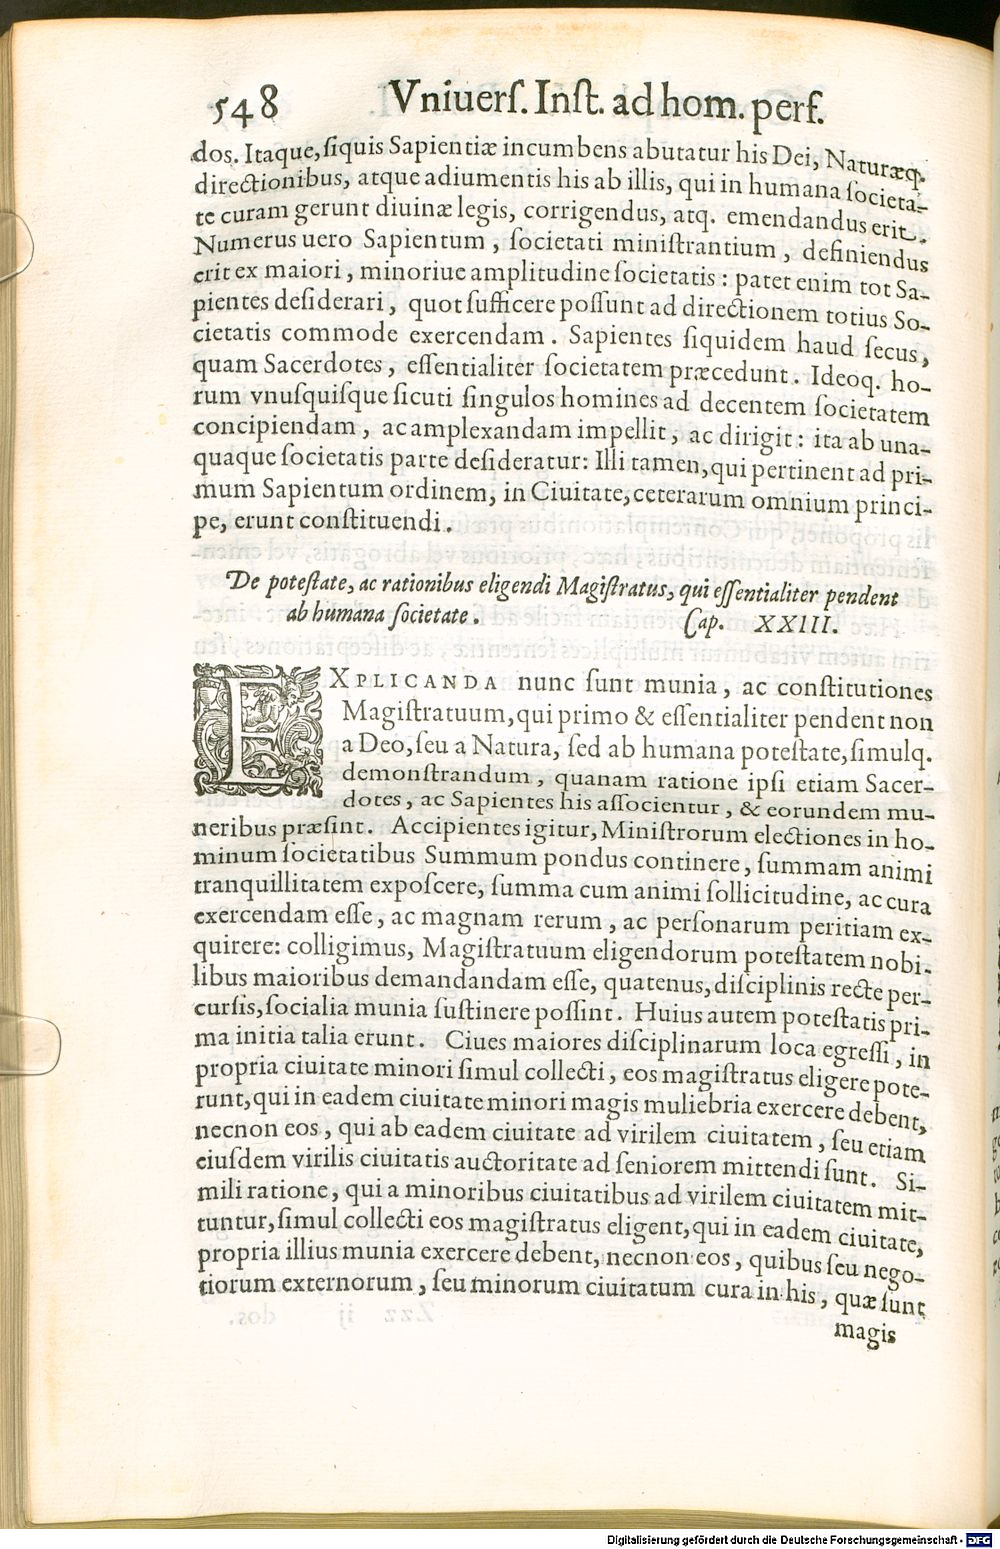 548 Vniuerſ. Inſt. ad hom. perf.
dos. Itaque, ſiquis Sapientiæ incumbens abutatur his Dei, Naturæq.
directionibus, atque adiumentis his ab illis, qui in humana ſocieta-
te curam gerunt diuinæ legis, corrigendus, atq. emendandus erit.
Numerus uero Sapientum, ſocietati miniſtrantium, definiendus
erit ex maiori, minoriue amplitudine ſocietatis: patet enim tot Sa-
pientes deſiderari, quot ſufficere poſſunt ad directionem totius So-
cietatis commode exercendam. Sapientes ſiquidem haud ſecus,
quam Sacerdotes, eſſentialiter ſocietatem præcedunt. Ideoq. ho-
rum vnuſquiſque ſicuti ſingulos homines ad decentem ſocietatem
concipiendam, ac amplexandam impellit, ac dirigit: ita ab una-
quaque ſocietatis parte deſideratur: Illi tamen, qui pertinent ad pri-
mum Sapientum ordinem, in Ciuitate, ceterarum omnium princi-
pe, erunt conſtituendi.
De poteſtate, ac rationibus eligendi Magiſtratus, qui eſſentialiter pendent
ab humana ſocietate. Cap. XXIII.
EXPLICANDA nunc ſunt munia, ac conſtitutiones
Magiſtratuum, qui primo & eſſentialiter pendent non
a Deo, ſeu a Natura, ſed ab humana poteſtate, ſimulq.
demonſtrandum, quanam ratione ipſi etiam Sacer-
dotes, ac Sapientes his aſſocientur, & eorundem mu-
neribus præſint. Accipientes igitur, Miniſtrorum electiones in ho-
minum ſocietatibus Summum pondus continere, ſummam animi
tranquillitatem expoſcere, ſumma cum animi ſollicitudine, ac cura
exercendam eſſe, ac magnam rerum, ac perſonarum peritiam ex-
quirere: colligimus, Magiſtratuum eligendorum poteſtatem nobi-
libus maioribus demandandam eſſe, quatenus, diſciplinis recte per-
curſis, ſocialia munia ſuſtinere poſſint. Huius autem poteſtatis pri-
ma initia talia erunt. Ciues maiores diſciplinarum loca egreſſi, in
propria ciuitate minori ſimul collecti, eos magiſtratus eligere pote-
runt, qui in eadem ciuitate minori magis muliebria exercere debent,
necnon eos, qui ab eadem ciuitate ad virilem ciuitatem, ſeu etiam
eiuſdem virilis ciuitatis auctoritate ad ſeniorem mittendi ſunt. Si-
mili ratione, qui a minoribus ciuitatibus ad virilem ciuitatem mit-
tuntur, ſimul collecti eos magiſtratus eligent, qui in eadem ciuitate,
propria illius munia exercere debent, necnon eos, quibus ſeu nego-
tiorum externorum, ſeu minorum ciuitatum cura in his, quæ ſunt
magis
Digitalisierung gefördert durch die Deutsche Forschungsgemeinschaft - DFG